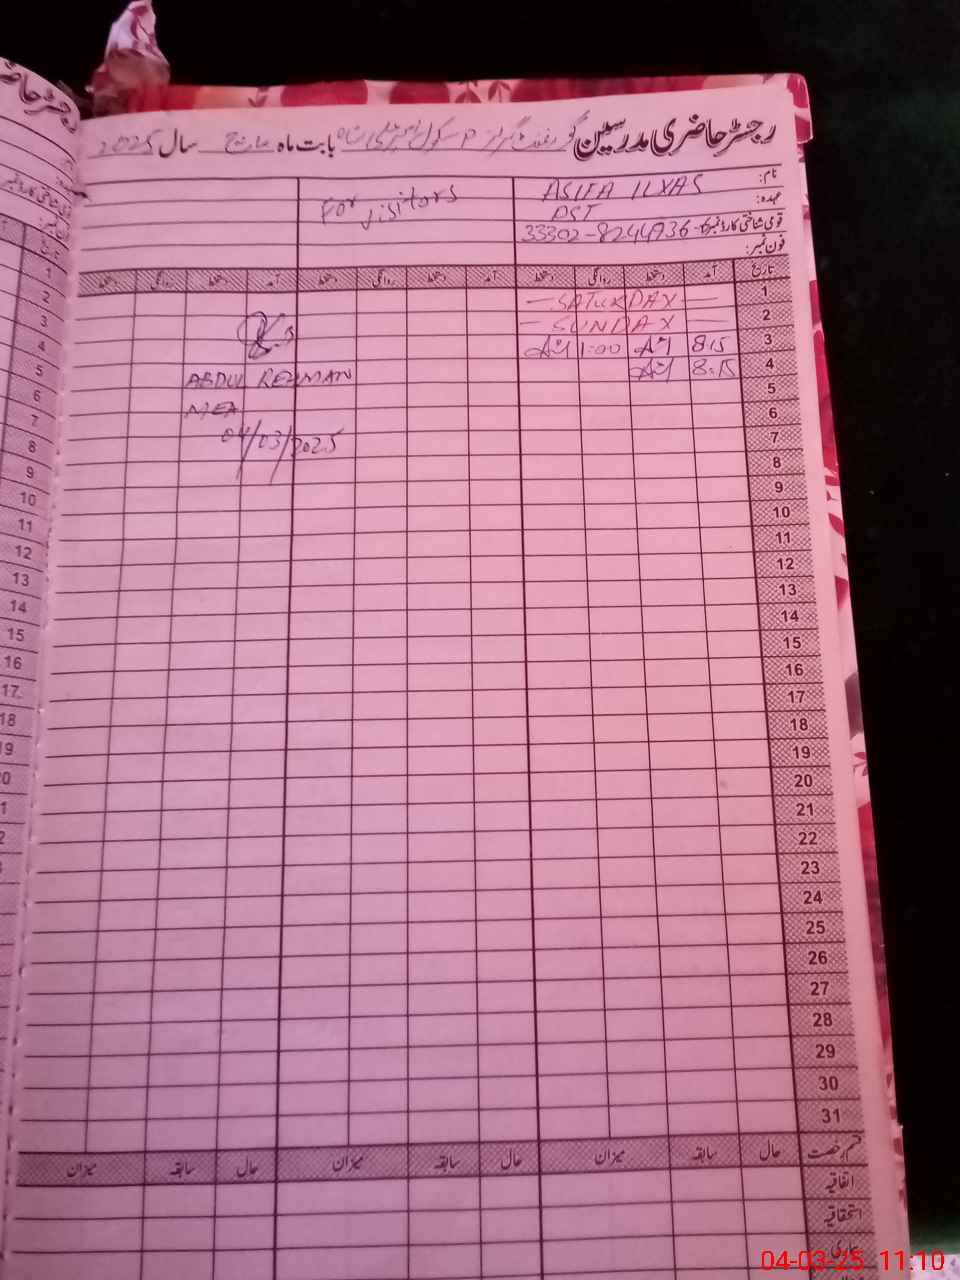 رجسٹر حاضری مدرسین گورنمنٹ گرلز سکول بابت ماہ مارچ سال 2025
نام: ASIFA ILYAS
عہدہ: PST
قومی شناختی کارڈ نمبر: 33302-8244936-6
فون نمبر:
For visitors
تاریخ آمد دستخط روانگی دستخط آمد دستخط روانگی دستخط آمد دستخط روانگی دستخط
1 — SATURDAY —
2 — SUNDAY —
3 8:15 1:00
4 8:15
5
6
7
8
9
10
11
12
13
14
15
16
17
18
19
20
21
22
23
24
25
26
27
28
29
30
31
ABDUL REHMAN
MEA
04/03/2025
قسم رخصت حال سابقہ میزان حال سابقہ میزان حال سابقہ میزان
اتفاقیہ
استحقاقیہ
بیماری
رجسٹر حا
1
2
3
4
5
6
7
8
9
10
11
12
13
14
15
16
17
18
19
04-03-25 11:10